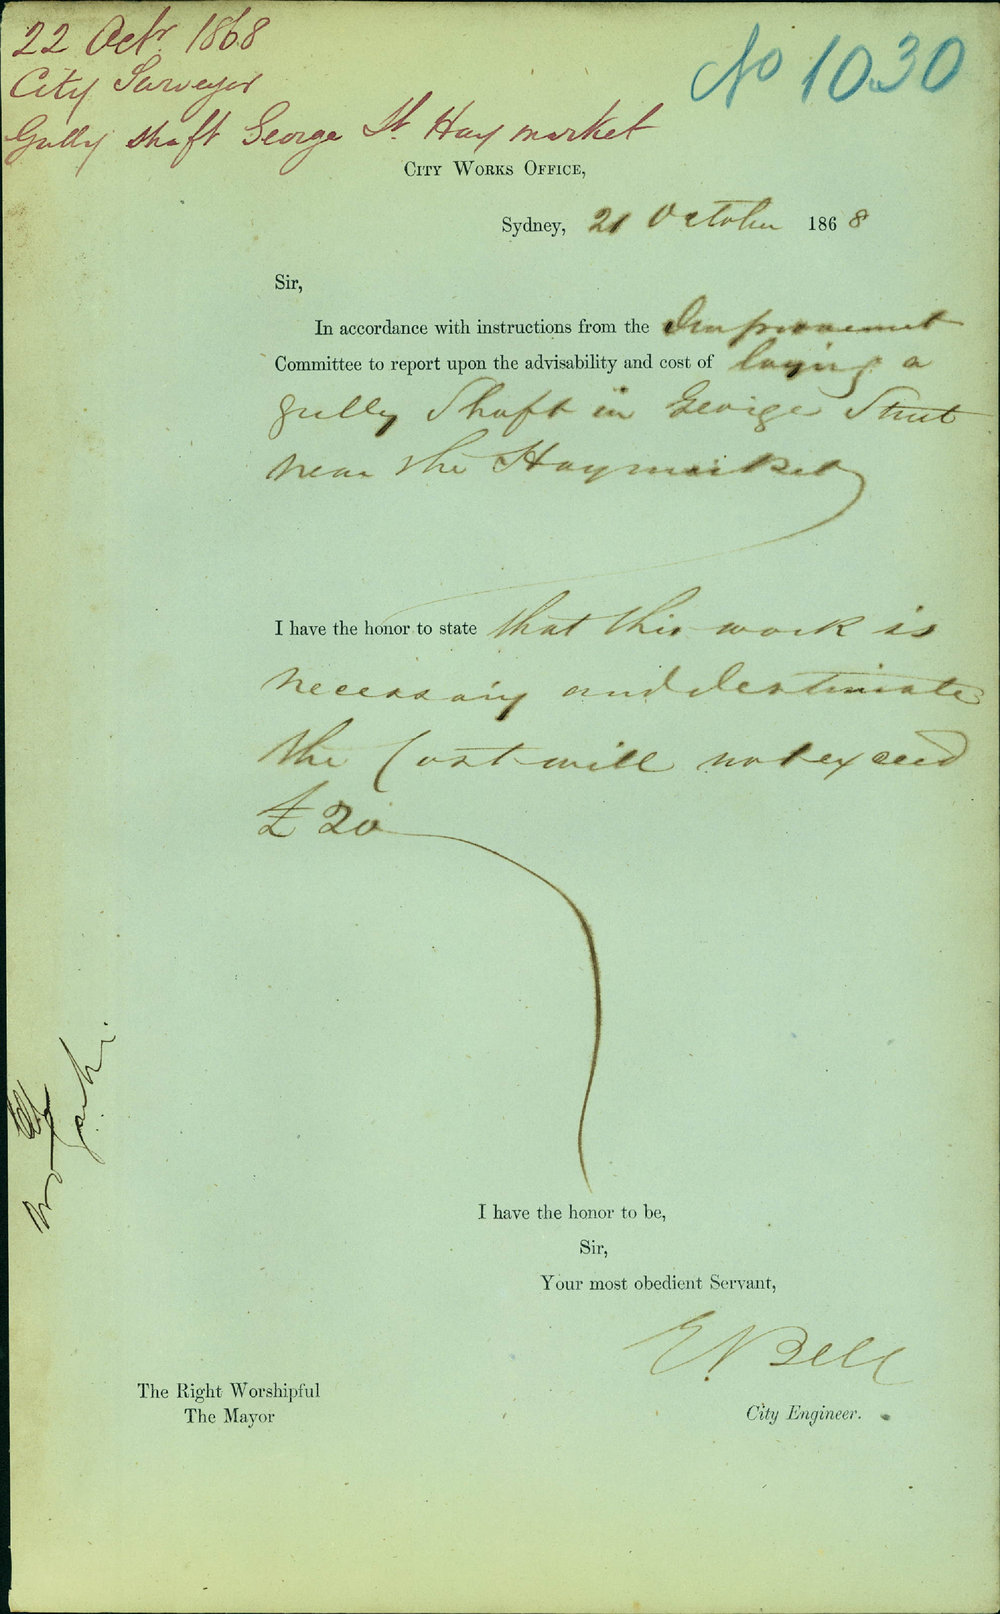 22 Octr. 1868
City Surveyor
Gully shaft George St. Haymarket
No 1030
City Works Office,
Sydney, 21 October 1868
Sir,
In accordance with instructions from the Improvement
Committee to report upon the advisability and cost of laying a
gully Shaft in George Street
near the Haymarket
I have the honor to state that this work is
necessary and I estimate
the Cost will not exceed
£20
I have the honor to be,
Sir,
Your most obedient Servant,
E Bell
The Right Worshipful
The Mayor
City Engineer.